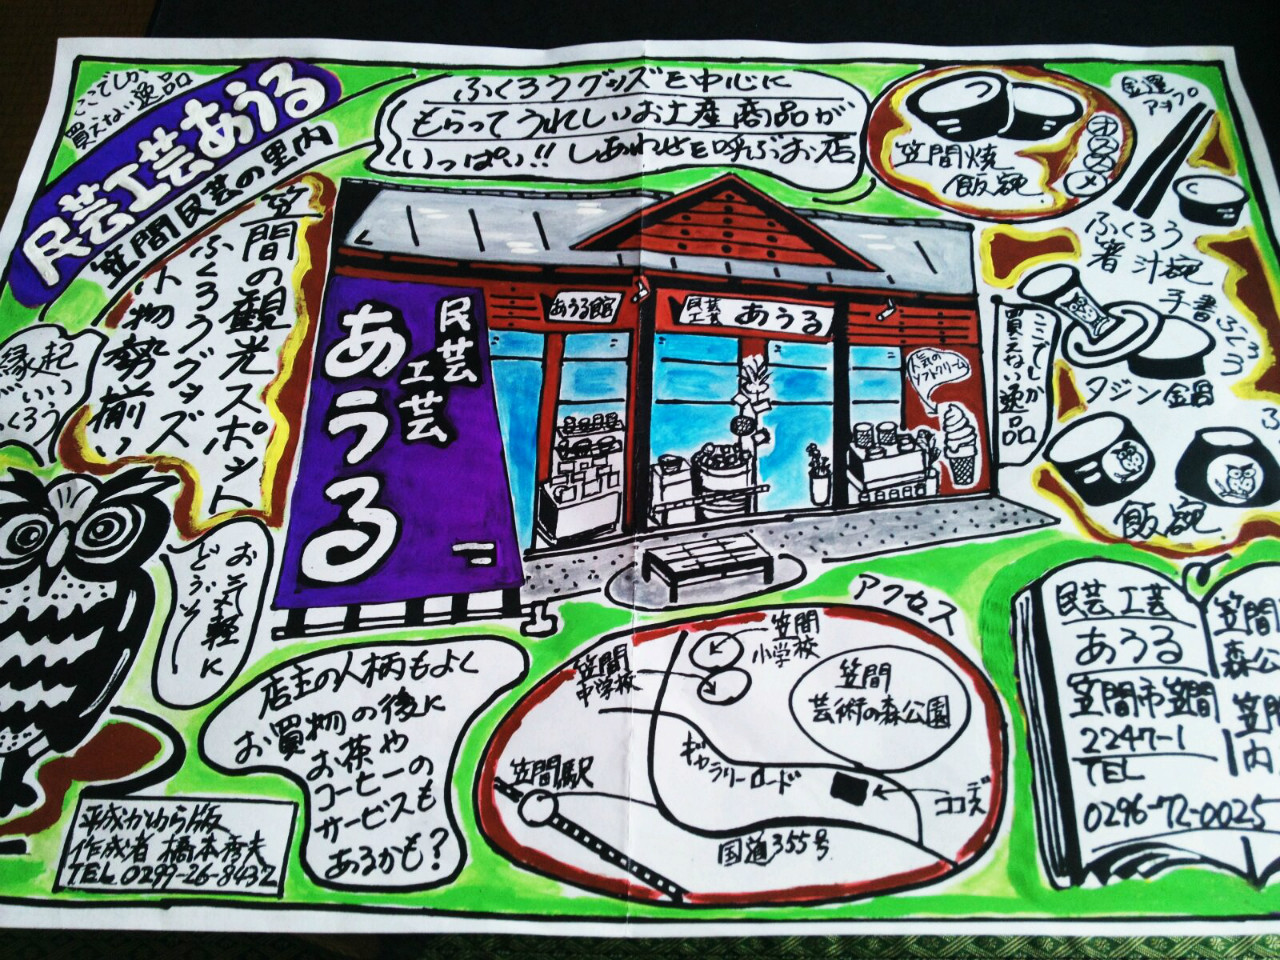 ここでしか
買えない逸品
民芸工芸あうる
笠間民芸の里内
ふくろうグッズを中心に
もらってうれしいお土産商品が
いっぱい!! しあわせを呼ぶお店
笠間焼
飯碗
オススメ
金運
アップ
ふくろう
箸 汁碗
手書ふくろう
タジン鍋
飯碗
笠間の観光スポット
ふくろうグッズ
小物勢揃い
縁起
いい
くろう
お気軽に
どうぞ
民芸
工芸
あうる
あうる館
民芸
工芸 あうる
人気の
ソフトクリーム
ここでしか
買えない逸品
店主の人柄もよく
お買物の後に
お茶や
コーヒーの
サービスも
あるかも?
アクセス
笠間
小学校
笠間
中学校
笠間
芸術の森公園
ギャラリーロード
笠間駅
ココです
国道355号
民芸工芸
あうる
笠間市笠間
2247-1
TEL
0296-72-0025
笠間
森公
笠間
内
平成かわら版
作成者 橋本秀夫
TEL 0299-26-8432